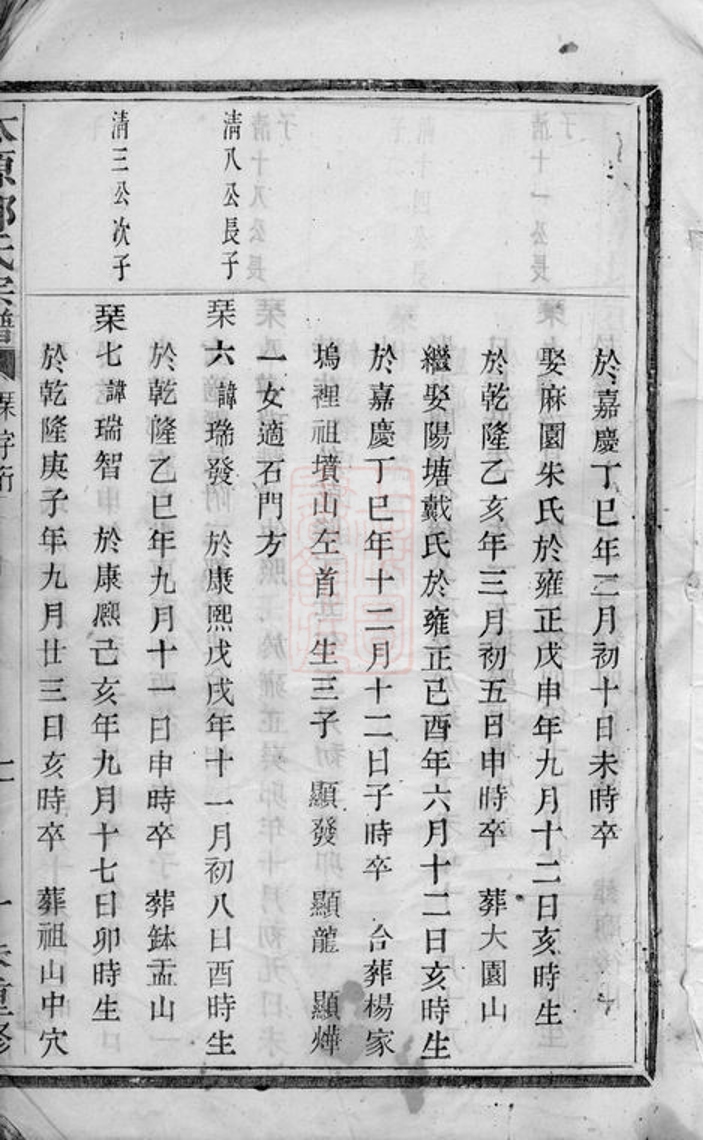 於嘉慶丁巳年二月初十日未時卒
娶麻園朱氏於雍正戊申年九月十二日亥時生
於乾隆乙亥年三月初五日申時卒 葬大園山
繼娶陽塘戴氏於雍正己酉年六月十二日亥時生
於嘉慶丁巳年十二月十二日子時卒 合葬楊家
塢裡祖墳山左首 生三子 顯發 顯龍 顯燁
一女適石門方
清八公長子
琹六 諱瑞發 於康熙戊戌年十一月初八日酉時生
於乾隆乙巳年九月十一日申時卒 葬鉢盂山
清三公次子
琹七 諱瑞智 於康熈己亥年九月十七日卯時生
於乾隆庚子年九月廿三日亥時卒 葬祖山中穴